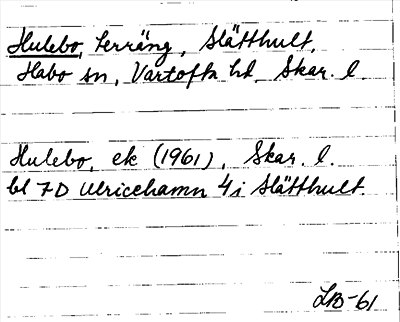 Hulebo, terräng, Slätthult,
Habo sn, Vartofta hd, Skar. l.
Hulebo, ek (1961), Skar. l.
bl 7D Ulricehamn 4i Slätthult.
LB-61